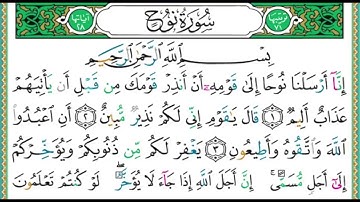 ترتيبها ٧١ سُورَةُ نُوحٍ آياتها ٢٨
بِسْمِ اللَّهِ الرَّحْمَٰنِ الرَّحِيمِ
إِنَّا أَرْسَلْنَا نُوحًا إِلَىٰ قَوْمِهِ أَنْ أَنذِرْ قَوْمَكَ مِن قَبْلِ أَن يَأْتِيَهُمْ
عَذَابٌ أَلِيمٌ ١ قَالَ يَٰقَوْمِ إِنِّي لَكُمْ نَذِيرٌ مُّبِينٌ ٢ أَنِ اعْبُدُوا
اللَّهَ وَاتَّقُوهُ وَأَطِيعُونِ ٣ يَغْفِرْ لَكُم مِّن ذُنُوبِكُمْ وَيُؤَخِّرْكُمْ
إِلَىٰ أَجَلٍ مُّسَمًّى إِنَّ أَجَلَ اللَّهِ إِذَا جَاءَ لَا يُؤَخَّرُ لَوْ كُنتُمْ تَعْلَمُونَ